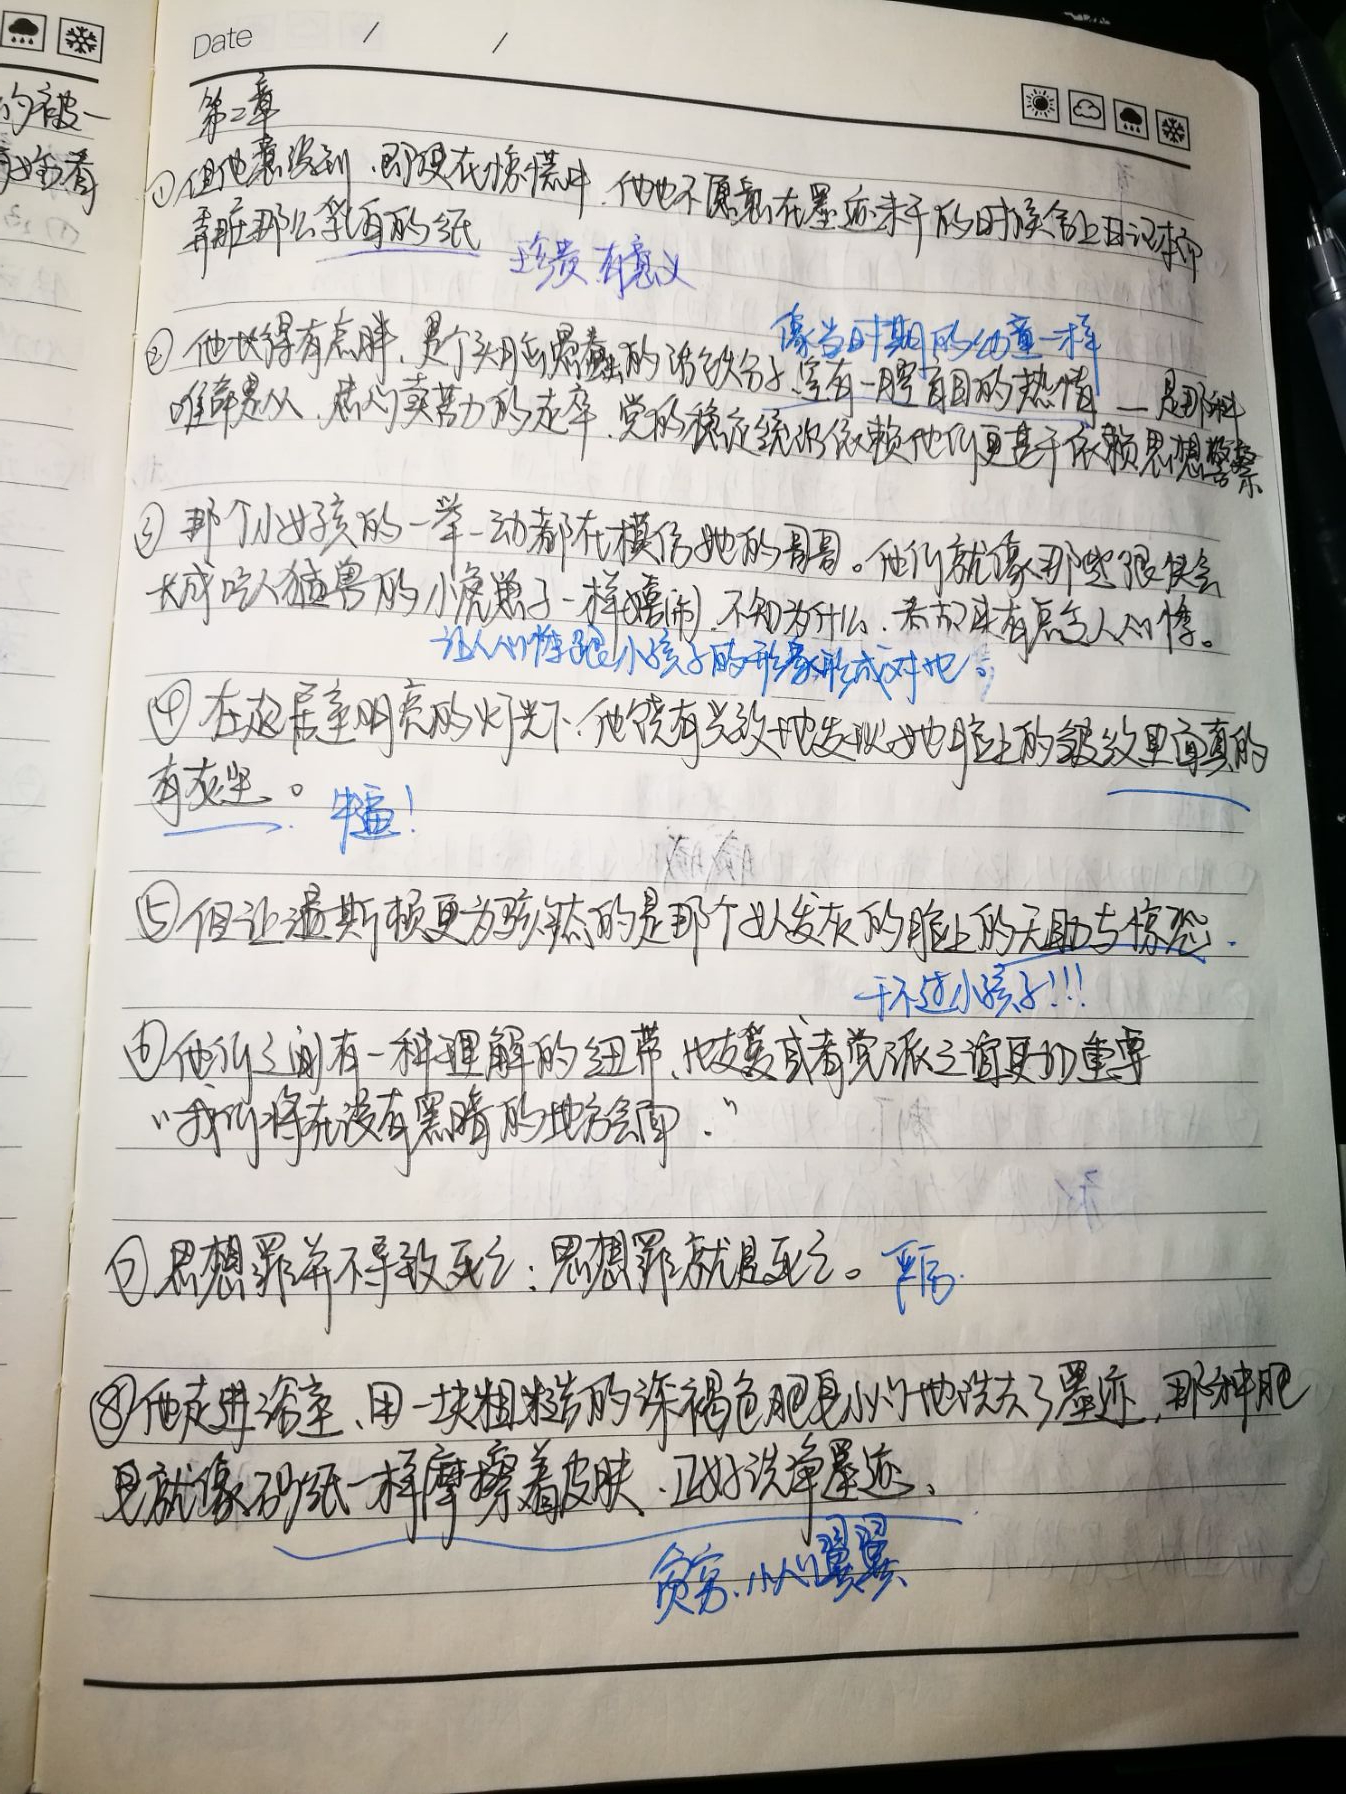 的被一
Date / /
第二章
①但他意识到，即使在惊慌中，他也不愿意在墨迹未干的时候合上日记本而
弄脏那么乳白的纸
珍贵 有意义
像当时期的幼童一样
②他长得有点胖，是个头脑愚蠢的活跃分子，空有一腔盲目的热情——是那种
唯命是从、忠心卖苦力的走卒，党的稳定统治依赖他们更甚于依赖思想警察
③那个小女孩的一举一动都在模仿她的哥哥。他们就像那些很快会
长成吃人猛兽的小虎崽子一样嬉闹，不知为什么，看起来有点令人心悸。
让人心悸跟小孩子的形象形成对比。
④在起居室明亮的灯光下，他饶有兴致地发现她脸上的皱纹里面真的
有灰尘。
牛逼！
⑤但让温斯顿更为骇然的是那个女人发灰的脸上的无助与惊恐.
干不过小孩子!!!
⑥他们之间有一种理解的纽带，比友爱或者党派之谊更加重要
“我们将在没有黑暗的地方会面.”
⑦思想罪并不导致死亡：思想罪就是死亡。
严厉.
⑧他走进浴室、用一块粗糙的深褐色肥皂小心地洗去了墨迹，那种肥
皂就像砂纸一样摩擦着皮肤、正好洗净墨迹、
贫穷.小心翼翼